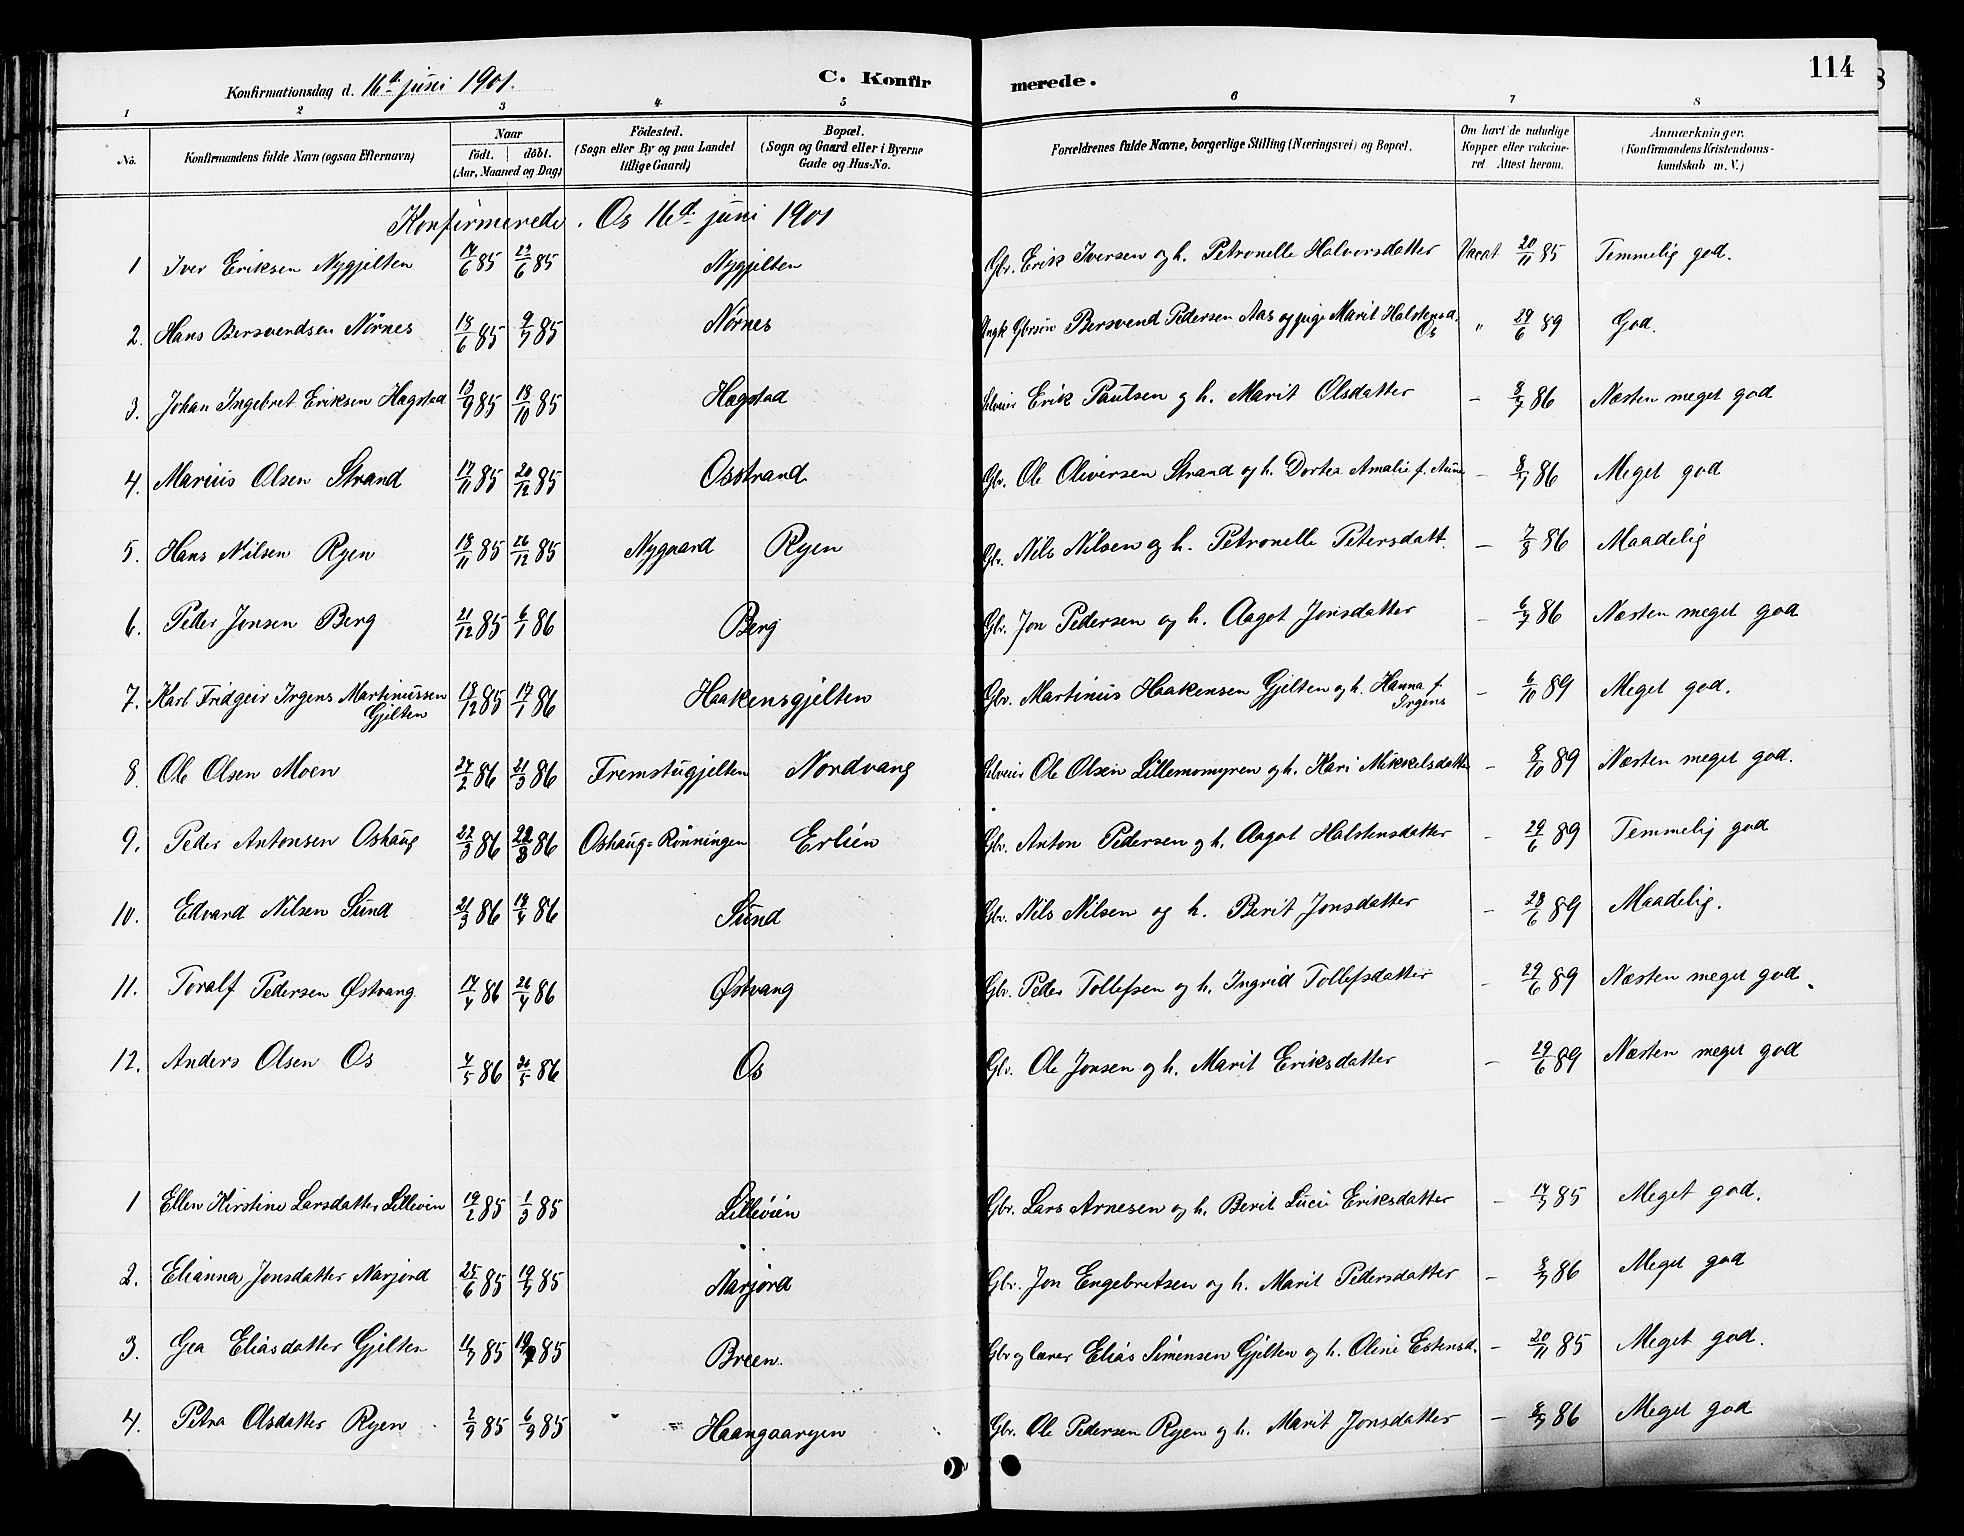 114
Konfirmationsdag d. 16d. juni 1901.
C. Konfirmerede.
1 2 3 4 5 6 7 8
No. Konfirmandens fulde Navn (ogsaa Efternavn) Naar födt. döbt. (Aar, Maaned og Dag) Födested. (Sogn eller By og paa Landet tillige Gaard) Bopæl. (Sogn og Gaard eller i Byerne Gade og Hus-No. Forældrenes fulde Navne, borgerlige Stilling (Næringsvei) og Bopæl. Om havt de naturlige Kopper eller vakcineret Attest herom. Anmærkninger. (Konfirmandens Kristendomskundskab m. V.)
Konfirmerede. Os 16d. juni 1901
1 Iver Eriksen Nygjelten 17/6 85 29/6 85 Nygjelten Gbr. Erik Iversen og h. Petronelle Halvorsdatter Vacat 20/11 85 Temmelig god.
2. Hans Bersvendsen Nörnes 18/6 85 9/7 85 Nörnes Ungk Gbrsön Bersvend Pedersen Aas og pige Marit Halstensd. Os " 29/6 89 God.
3. Johan Ingebret Eriksen Hagstad 13/9 85 18/10 85 Hagstad Selveier Erik Paulsen og h. Marit Olsdatter - 8/7 86 Næsten meget god
4. Marius Olsen Strand 17/11 85 20/12 85 Osstrand Gbr. Ole Oliversen Strand og h. Dortea Amalie f. Aune - 8/7 86 Meget god
5. Hans Nilsen Ryen 18/11 85 26/12 85 Nygaard Ryen Gbr. Nils Nilsen og h. Petronelle Petersdatt. - 7/8 86 Maadelig
6. Peder Jonsen Berg 21/12 85 6/1 86 Berg Gbr. Jon Pedersen og h. Aagot Jonsdatter - 6/7 86 Næsten meget god
7. Karl Fridgeir Irgens Martinussen Gjelten 18/12 85 17/1 86 Haakensgjelten Gbr. Martinus Haakensen Gjelten og h. Hanna f. Irgens - 6/10 89 Meget god.
8 Ole Olsen Moen 27/2 86 21/3 86 Fremstugjelten Nordvang Selveier Ole Olsen Lillemomyren og h. Kari Mikkelsdatter - 8/10 89 Næsten meget god.
9. Peder Antonsen Oshaug 22/3 86 28/3 86 Oshaug=Rönningen Erlien Gbr. Anton Pedersen og h. Aagot Halstensdatter - 29/6 89 Temmelig god
10. Edvard Nilsen Sund 21/3 86 18/4 86 Sund Gbr. Nils Nilsen og h. Berit Jonsdatter - 28/6 89 Maadelig.
11. Toralf Pedersen Östvang 17/4 86 26/4 86 Östvang Gbr. Peder Tollefsen og h. Ingrid Tollefsdatter - 29/6 89 Næsten meget god.
12. Anders Olsen Os 4/5 86 20/5 86 Os Gbr. Ole Jonsen og h. Marit Eriksdatter - 29/6 89 Næsten meget god
1 Ellen Kirstine Larsdatter Lilleöien 19/2 85 1/3 85 Lilleöien Gbr. Lars Arnesen og h. Berit Lucie Eriksdatter - 17/7 85 Meget god.
2. Elianna Jonsdatter Narjord 25/6 85 19/7 85 Narjord Gbr. Jon Engebretsen og h. Marit Pedersdatter - 8/7 86 Meget god
3. Gea Eliasdatter Gjelten 11/7 85 19/7 85 Breen. Gbr og lærer Elias Simensen Gjelten og h. Oline Estensd. - 20/11 85 Meget god.
4. Petra Olsdatter Ryen 2/9 85 6/9 85 Haangaaryen Gbr. Ole Pedersen Ryen og h. Marit Jonsdatter - 8/7 86 Meget god